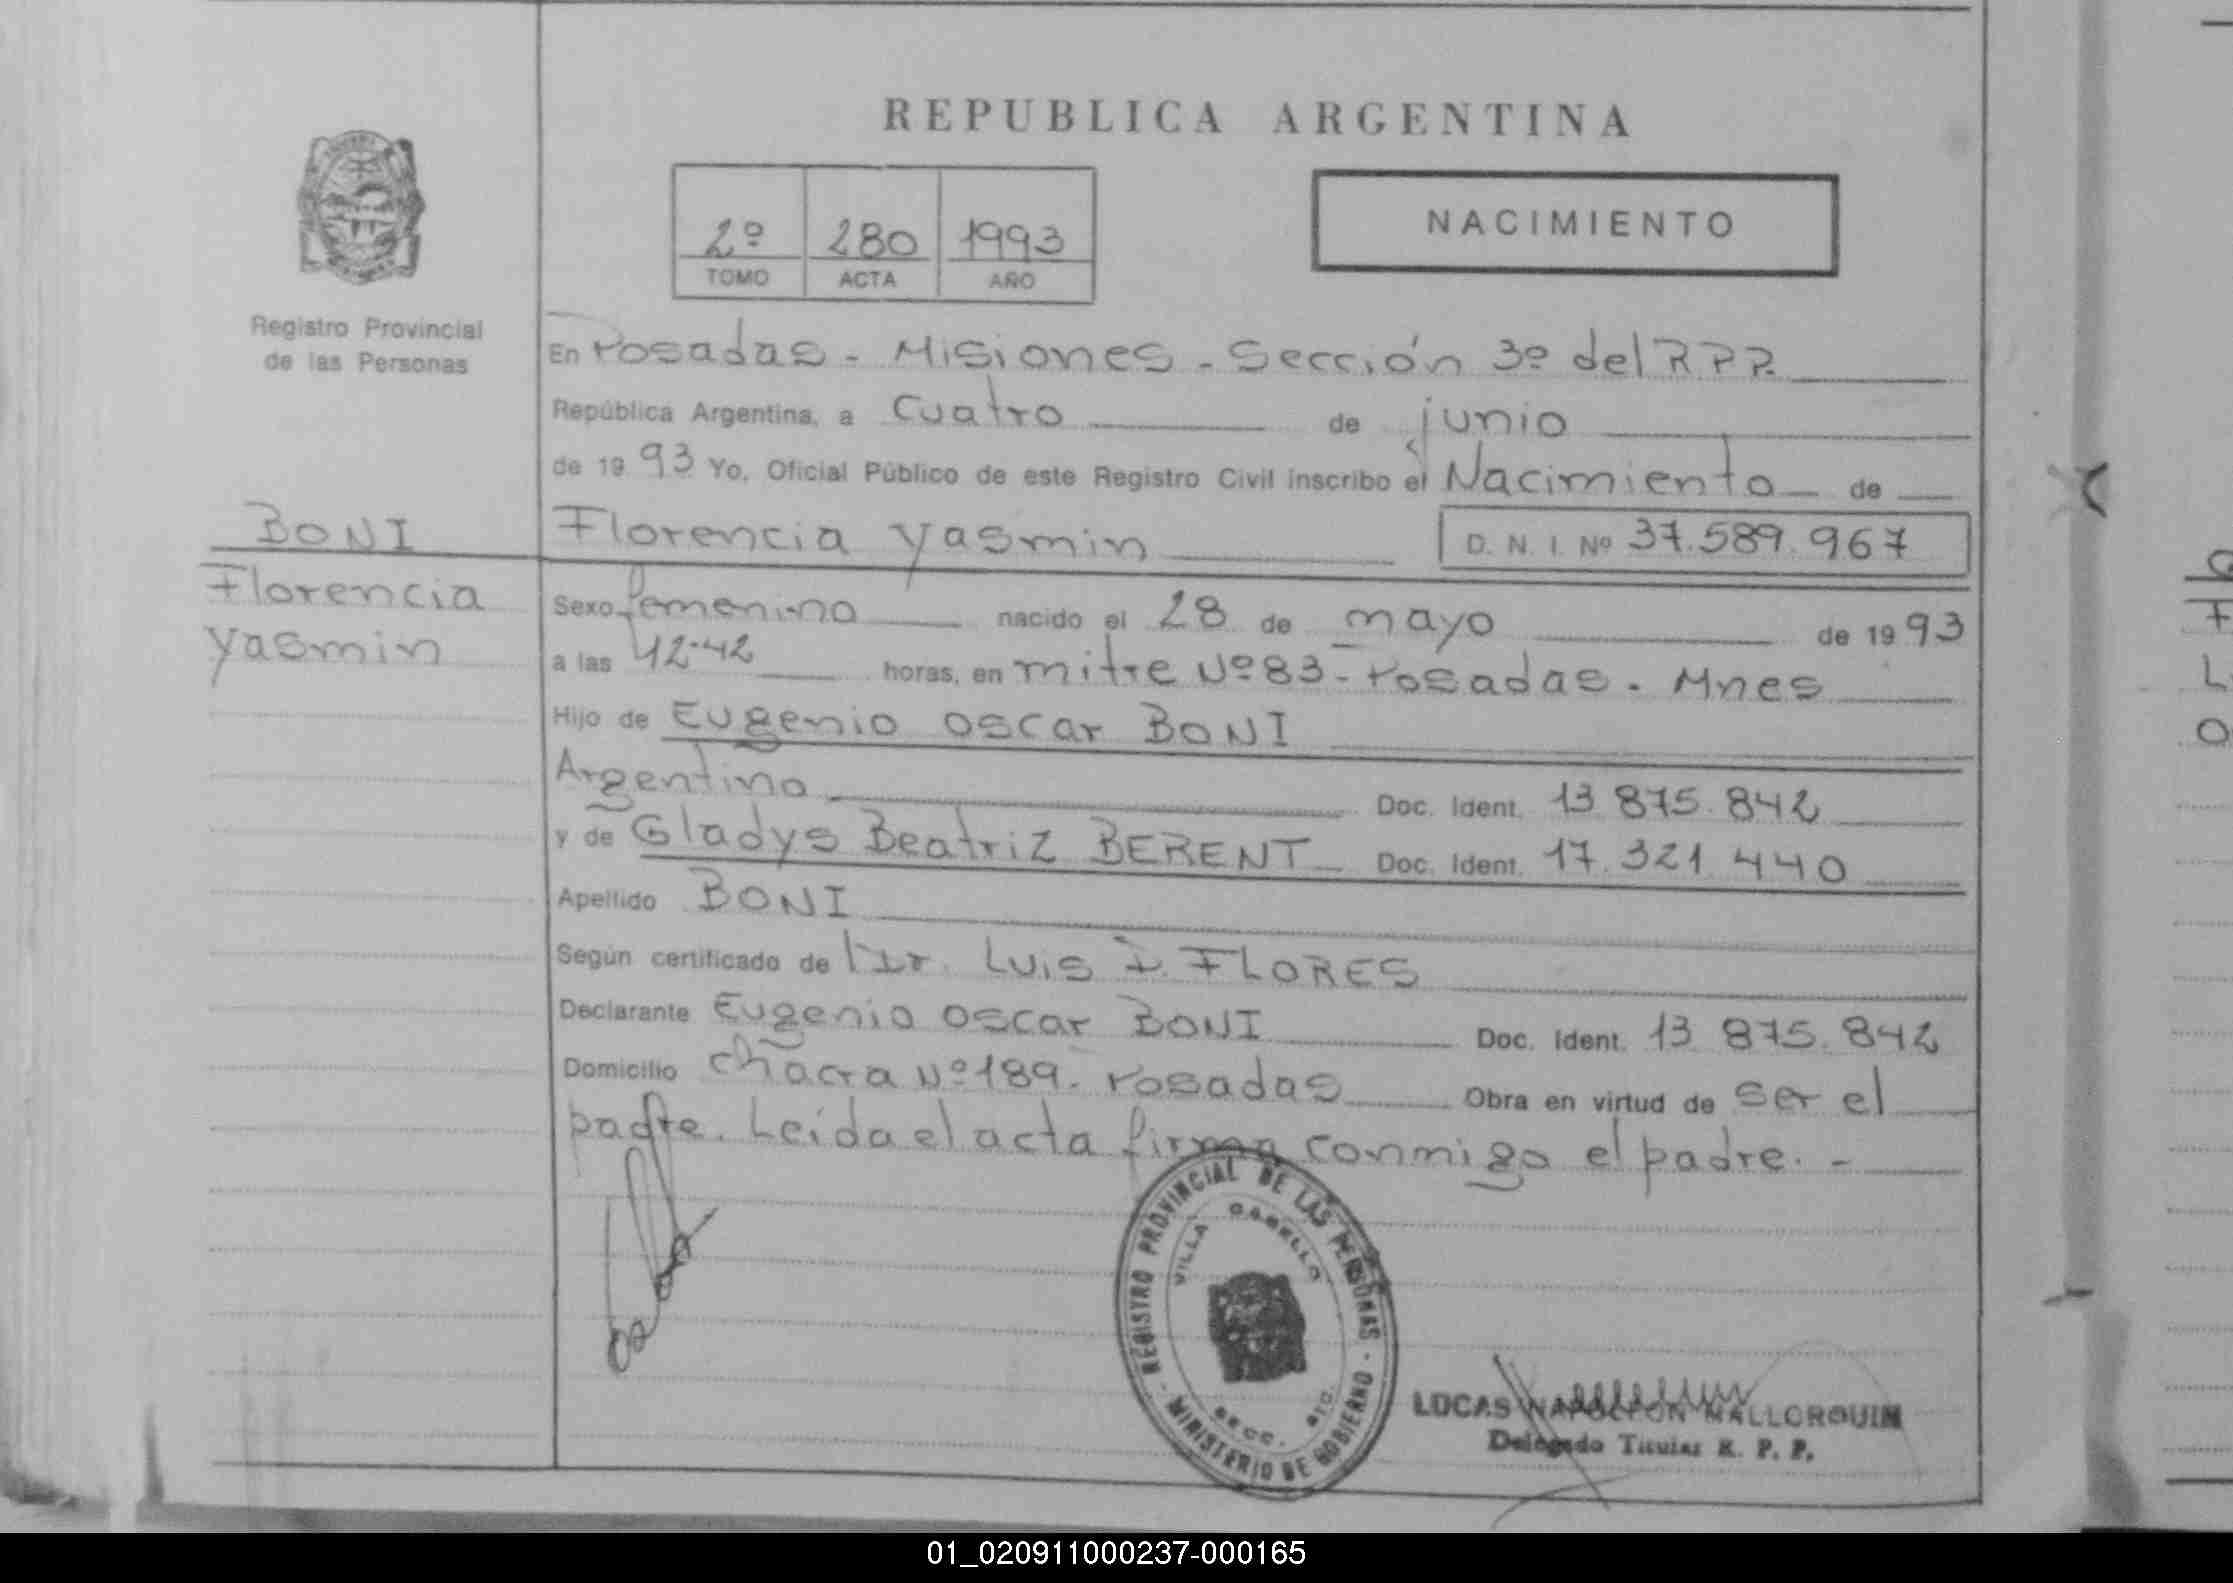 REPUBLICA ARGENTINA
2º 280 1993
TOMO ACTA AÑO
NACIMIENTO
Registro Provincial
de las Personas
BONI
Florencia
Yasmin
En Posadas - Misiones - Sección 3º del R P P.
República Argentina, a Cuatro de junio
de 1993 Yo, Oficial Público de este Registro Civil inscribo el Nacimiento de
Florencia Yasmin D. N. I. Nº 37.589.967
Sexo femenino nacido el 28 de mayo de 1993
a las 12:42 horas, en mitre Nº 83 - Posadas - Mnes
Hijo de Eugenio Oscar BONI
Argentino Doc. Ident. 13 875. 842
y de Gladys Beatriz BERENT Doc. Ident. 17. 321. 440
Apellido BONI
Según certificado de Dr. Luis FLORES
Declarante Eugenio Oscar BONI Doc. Ident. 13 875. 842
Domicilio Chacra Nº 189. Posadas Obra en virtud de ser el
padre. Leída el acta firma conmigo el padre. -
REGISTRO PROVINCIAL DE LAS PERSONAS - MINISTERIO DE GOBIERNO -
VILLA CABELLO
SECC.
LUCAS NAPOLEON MALLORQUIN
Delegado Titular R. P. P.
01_020911000237-000165